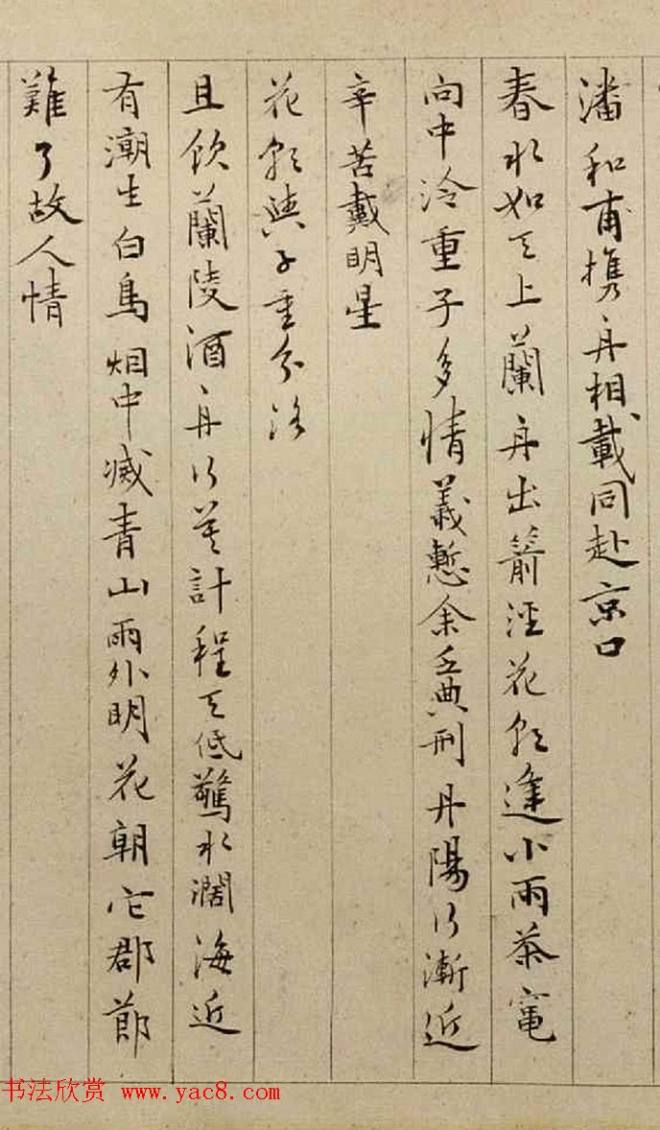 潘和甫携舟相載同赴京口
春水如天上蘭舟出箭涇花朝逢小雨茶竈
向中泠重子多情義慙余乏典刑丹陽行漸近
辛苦戴明星
花朝與子重分詠
且飲蘭陵酒舟行莫計程天低驚水濶海近
有潮生白鳥烟中滅青山雨外明花朝它郡節
難了故人情
书法欣赏 www.yac8.com